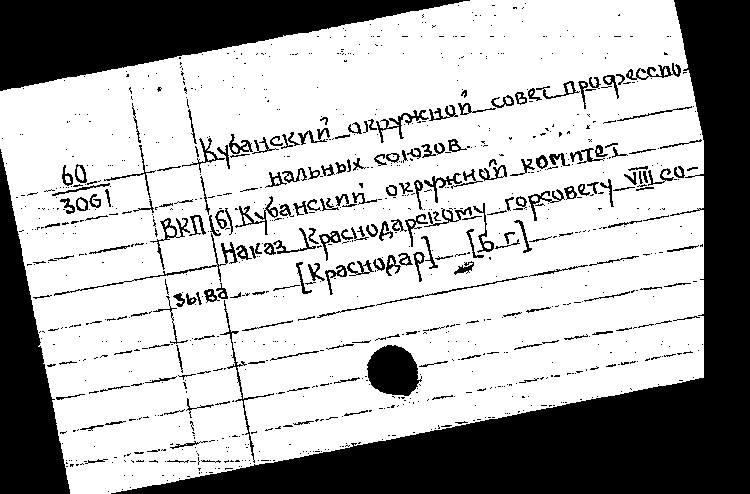 Кубанский окружной совет профессио-
60
3061
нальных союзов
ВКП(б) Кубанский окружной комитет
Наказ Краснодарскому горсовету VIII со-
зыва
[Краснодар] [б. г.]